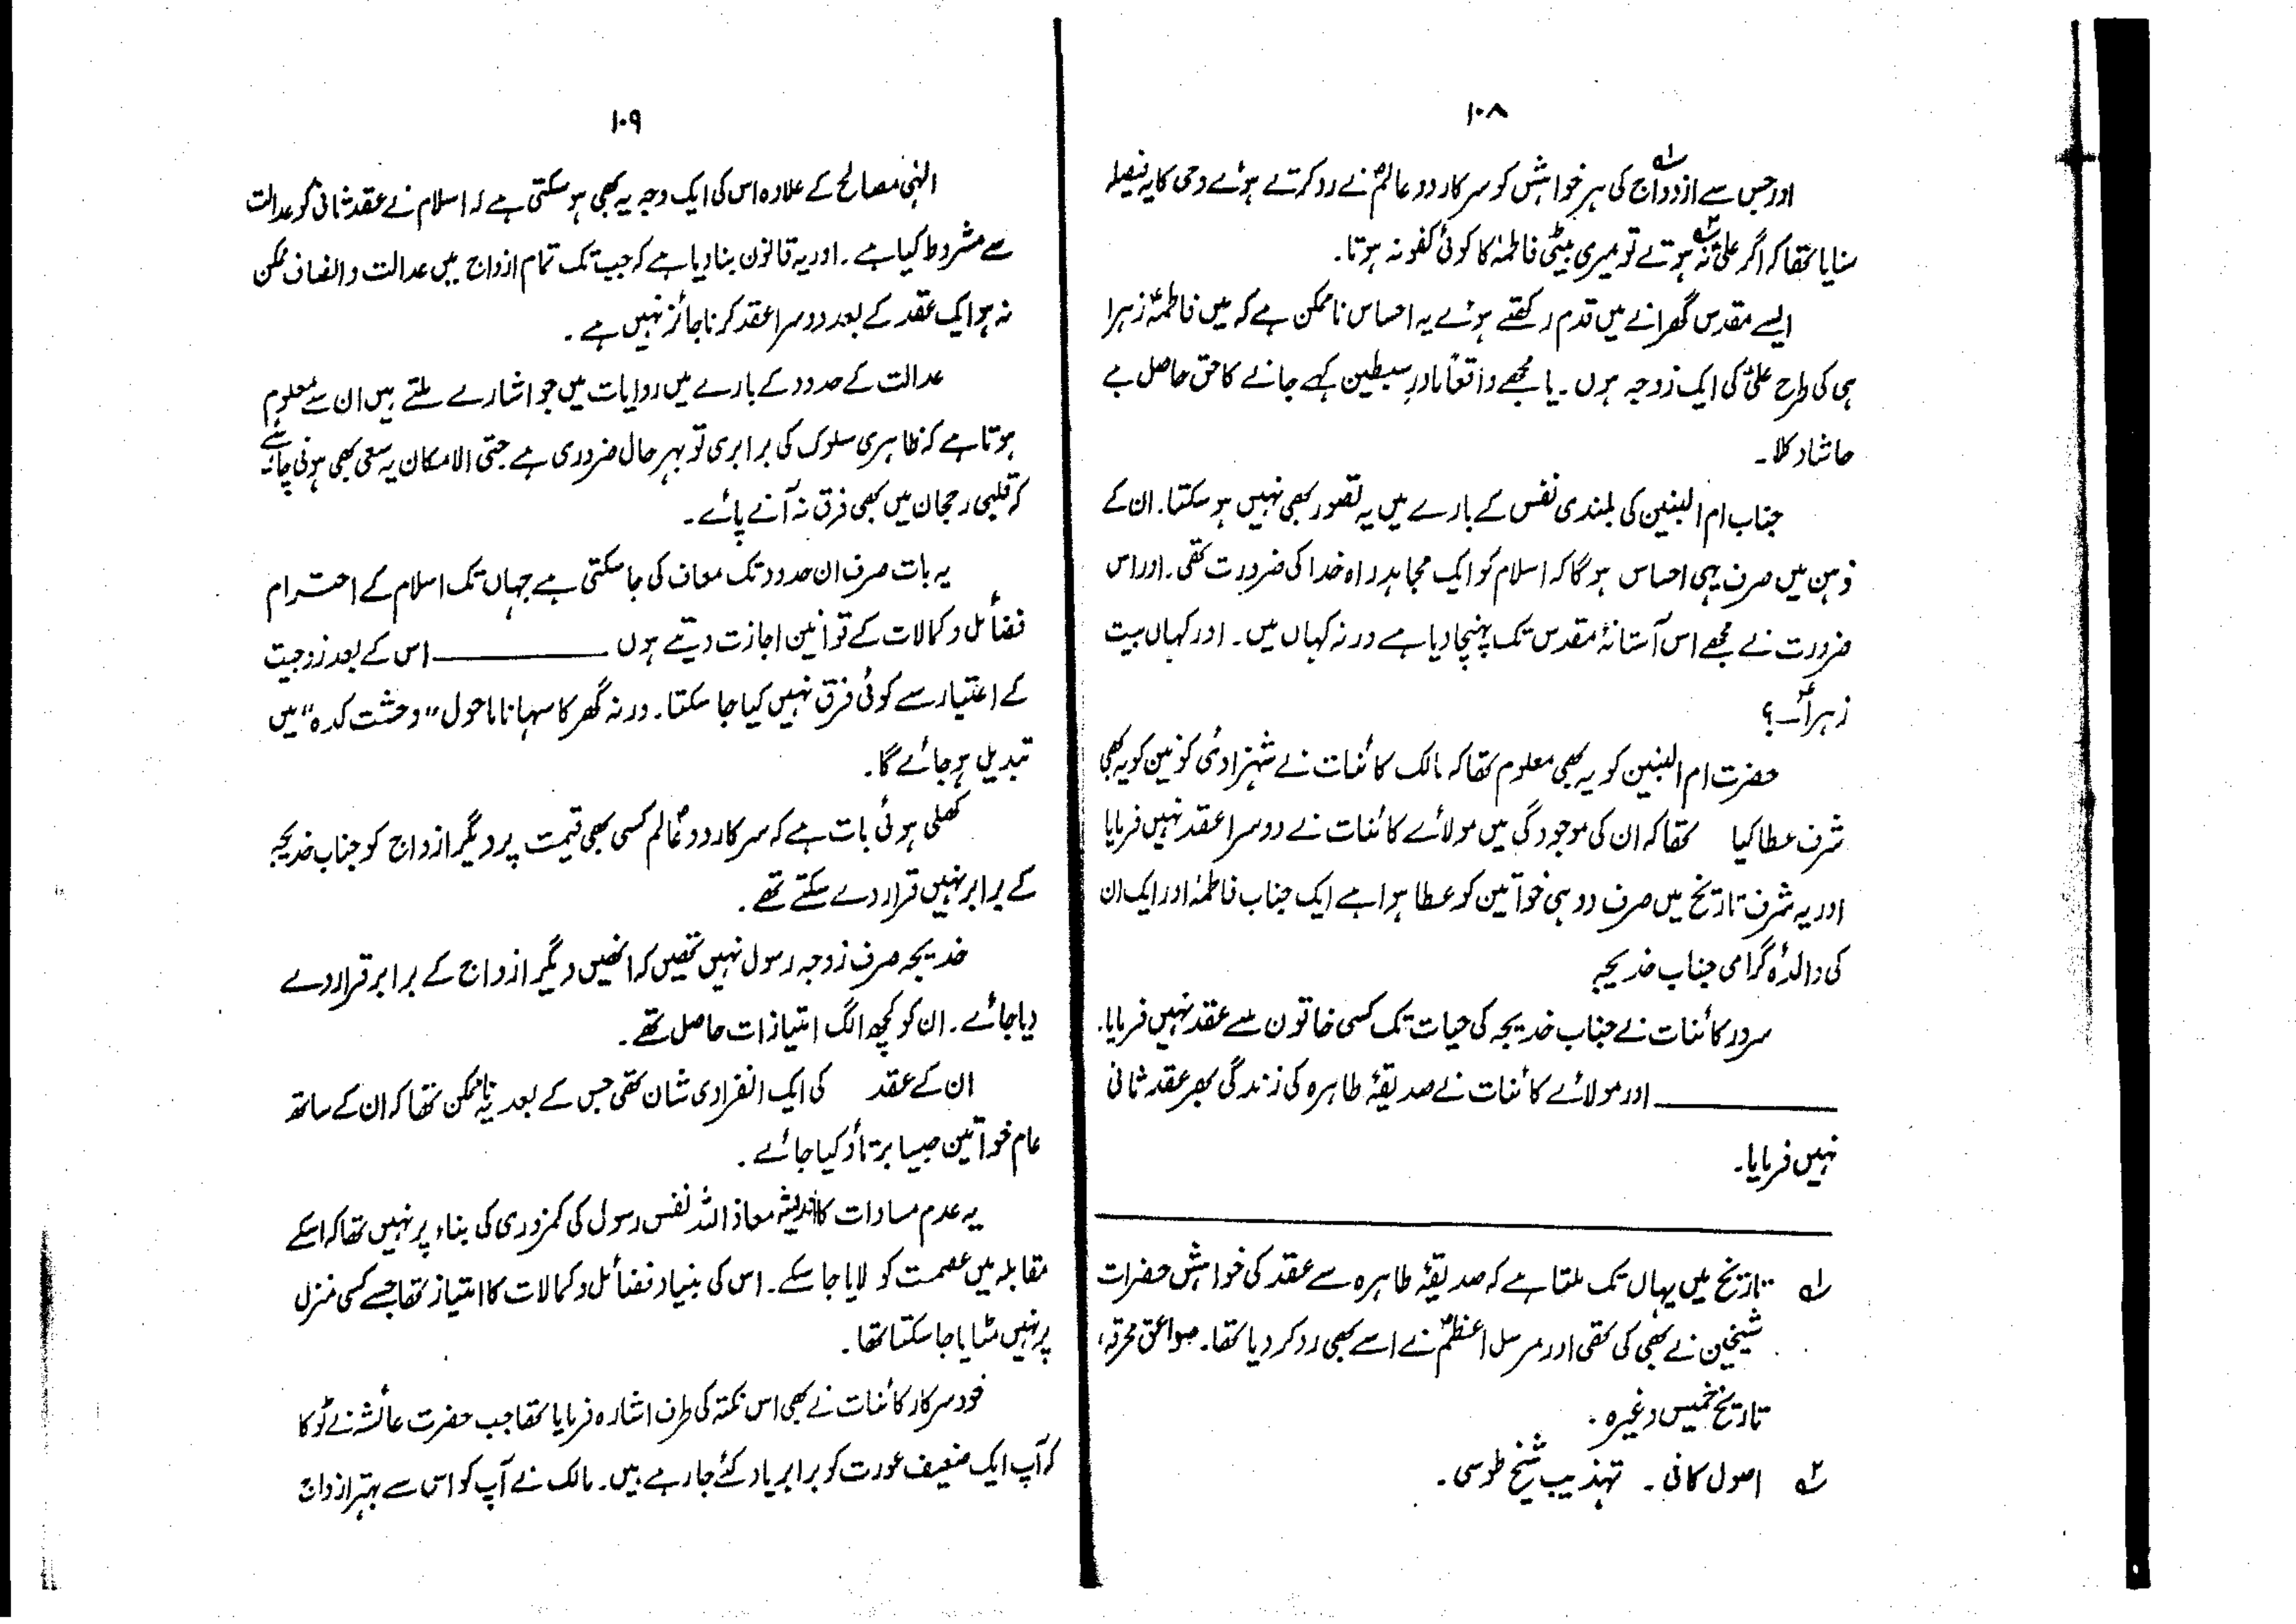 ۱۰۸
اور جس سے ازدواج کی ہر خواہش کو سرکار دو عالمؐ نے رد کرتے ہوئے وحی کا یہ فیصلہ
سنایا تھا کہ اگر علیؑ نہ ہوتے تو میری بیٹی فاطمہؑ کا کوئی کفو نہ ہوتا۔
ایسے مقدس گھرانے میں قدم رکھتے ہوئے یہ احساس ناممکن ہے کہ میں فاطمہؑ زہرا
ہی کی طرح علیؑ کی ایک زوجہ ہوں۔ یا مجھے واقعاً مادرِ سبطین کہے جانے کا حق حاصل ہے
حاشا و کلا۔
جناب ام البنین کی بلندی نفس کے بارے میں یہ تصور بھی نہیں ہو سکتا۔ ان کے
ذہن میں صرف یہی احساس ہوگا کہ اسلام کو ایک مجاہد راہ خدا کی ضرورت تھی۔ اور اس
ضرورت نے مجھے اس آستانۂ مقدس تک پہنچا دیا ہے ورنہ کہاں میں۔ اور کہاں بیت
زہراؑ ؟
حضرت ام البنین کو یہ بھی معلوم تھا کہ مالک کائنات نے شہزادیٔ کونین کو یہ بھی
شرف عطا کیا تھا کہ ان کی موجودگی میں مولائے کائنات نے دوسرا عقد نہیں فرمایا
اور یہ شرف تاریخ میں صرف دو ہی خواتین کو عطا ہوا ہے ایک جناب فاطمہؑ اور ایک ان
کی والدۂ گرامی جناب خدیجہ
سرور کائنات نے جناب خدیجہ کی حیات تک کسی خاتون سے عقد نہیں فرمایا۔
ــــــــــــ اور مولائے کائنات نے صدیقۂ طاہرہ کی زندگی بھر عقد ثانی
نہیں فرمایا۔
۱؎ تاریخ میں یہاں تک ملتا ہے کہ صدیقۂ طاہرہ سے عقد کی خواہش حضرات
شیخین نے بھی کی تھی اور مرسل اعظمؐ نے اسے بھی رد کر دیا تھا۔ صواعق محرقہ،
تاریخ خمیس وغیرہ۔
۲؎ اصول کافی۔ تہذیب شیخ طوسی۔
۱۰۹
الٰہی مصالح کے علاوہ اس کی ایک وجہ یہ بھی ہو سکتی ہے کہ اسلام نے عقد ثانی کو عدالت
سے مشروط کیا ہے۔ اور یہ قانون بنا دیا ہے کہ جب تک تمام ازواج میں عدالت و انصاف ممکن
نہ ہو ایک عقد کے بعد دوسرا عقد کرنا جائز نہیں ہے۔
عدالت کے حدود کے بارے میں روایات میں جو اشارے ملتے ہیں ان سے معلوم
ہوتا ہے کہ ظاہری سلوک کی برابری تو بہر حال ضروری ہے حتی الامکان یہ سعی بھی ہونی چاہئے
کہ قلبی رجحان میں بھی فرق نہ آنے پائے۔
یہ بات صرف ان حدود تک معاف کی جا سکتی ہے جہاں تک اسلام کے احترام
فضائل و کمالات کے قوانین اجازت دیتے ہوں ــــــــــــ اس کے بعد زوجیت
کے اعتبار سے کوئی فرق نہیں کیا جا سکتا۔ ورنہ گھر کا سہانا ماحول "وحشت کدہ" میں
تبدیل ہو جائے گا۔
کھلی ہوئی بات ہے کہ سرکار دو عالمؐ کسی بھی قیمت پر دیگر ازواج کو جناب خدیجہ
کے برابر نہیں قرار دے سکتے تھے۔
خدیجہ صرف زوجہ رسول نہیں تھیں کہ انھیں دیگر ازواج کے برابر قرار دے
دیا جائے۔ ان کو کچھ الگ امتیازات حاصل تھے۔
ان کے عقد کی ایک انفرادی شان تھی جس کے بعد یہ ناممکن تھا کہ ان کے ساتھ
عام خواتین جیسا برتاؤ کیا جائے۔
یہ عدم مساوات کا اندیشہ معاذ اللہ نفس رسول کی کمزوری کی بناء پر نہیں تھا کہ اسکے
مقابلہ میں عصمت کو لایا جا سکے۔ اس کی بنیاد فضائل و کمالات کا امتیاز تھا جسے کسی منزل
پر نہیں مٹایا جا سکتا تھا۔
خود سرکار کائنات نے بھی اس نکتہ کی طرف اشارہ فرمایا تھا جب حضرت عائشہ نے ٹوکا
کہ آپ ایک ضعیف عورت کو برابر یاد کئے جا رہے ہیں۔ مالک نے آپ کو اس سے بہتر ازواج